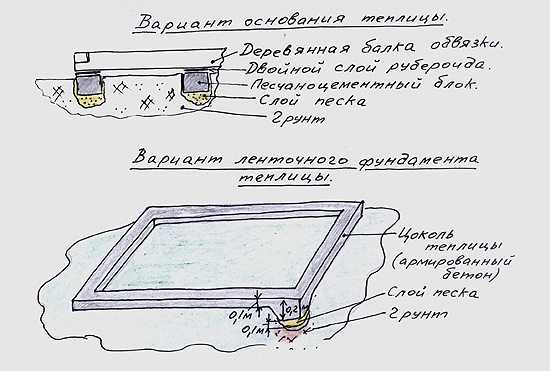 Вариант основания теплицы.
Деревянная балка обвязки.
Двойной слой рубероида.
Песчаноцементный блок.
Слой песка
Грунт
Вариант ленточного фундамента
теплицы.
Цоколь
теплицы
(армированный
бетон)
0,1м
0,2м
Слой песка
0,1м
Грунт